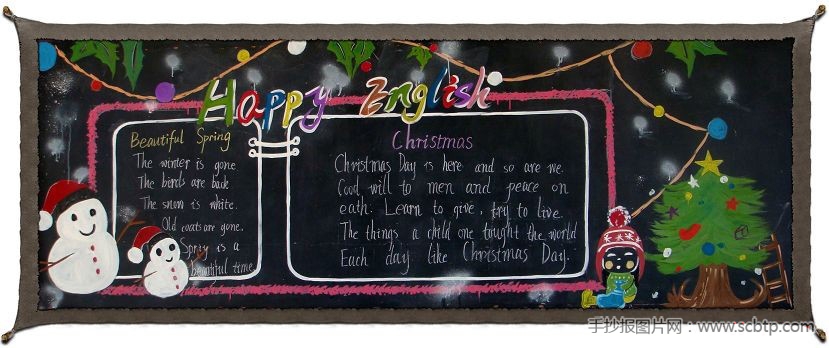 Happy English
Beautiful Spring
The winter is gone.
The birds are back
The snow is white.
Old coats are gone.
Spring is a
beautiful time
Christmas
Christmas Day is here and so are we.
Good will to men and peace on
eath. Learn to give, try to live.
The things a child one tought the world
Each day like Christmas Day.
手抄报图片网:www.scbtp.com